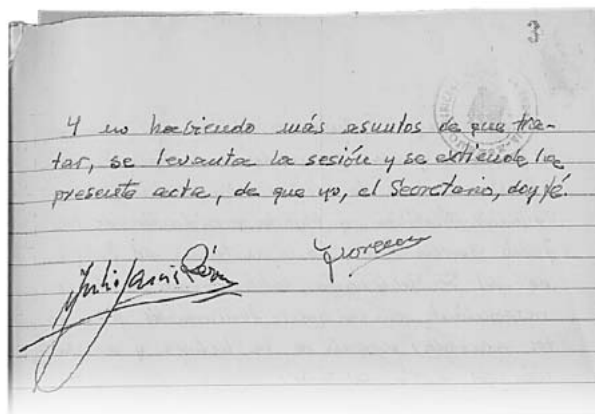 3
Y no habiendo más asuntos de que tra-
tar, se levanta la sesión y se extiende la
presente acta, de que yo, el Secretario, doy fé.
Julio